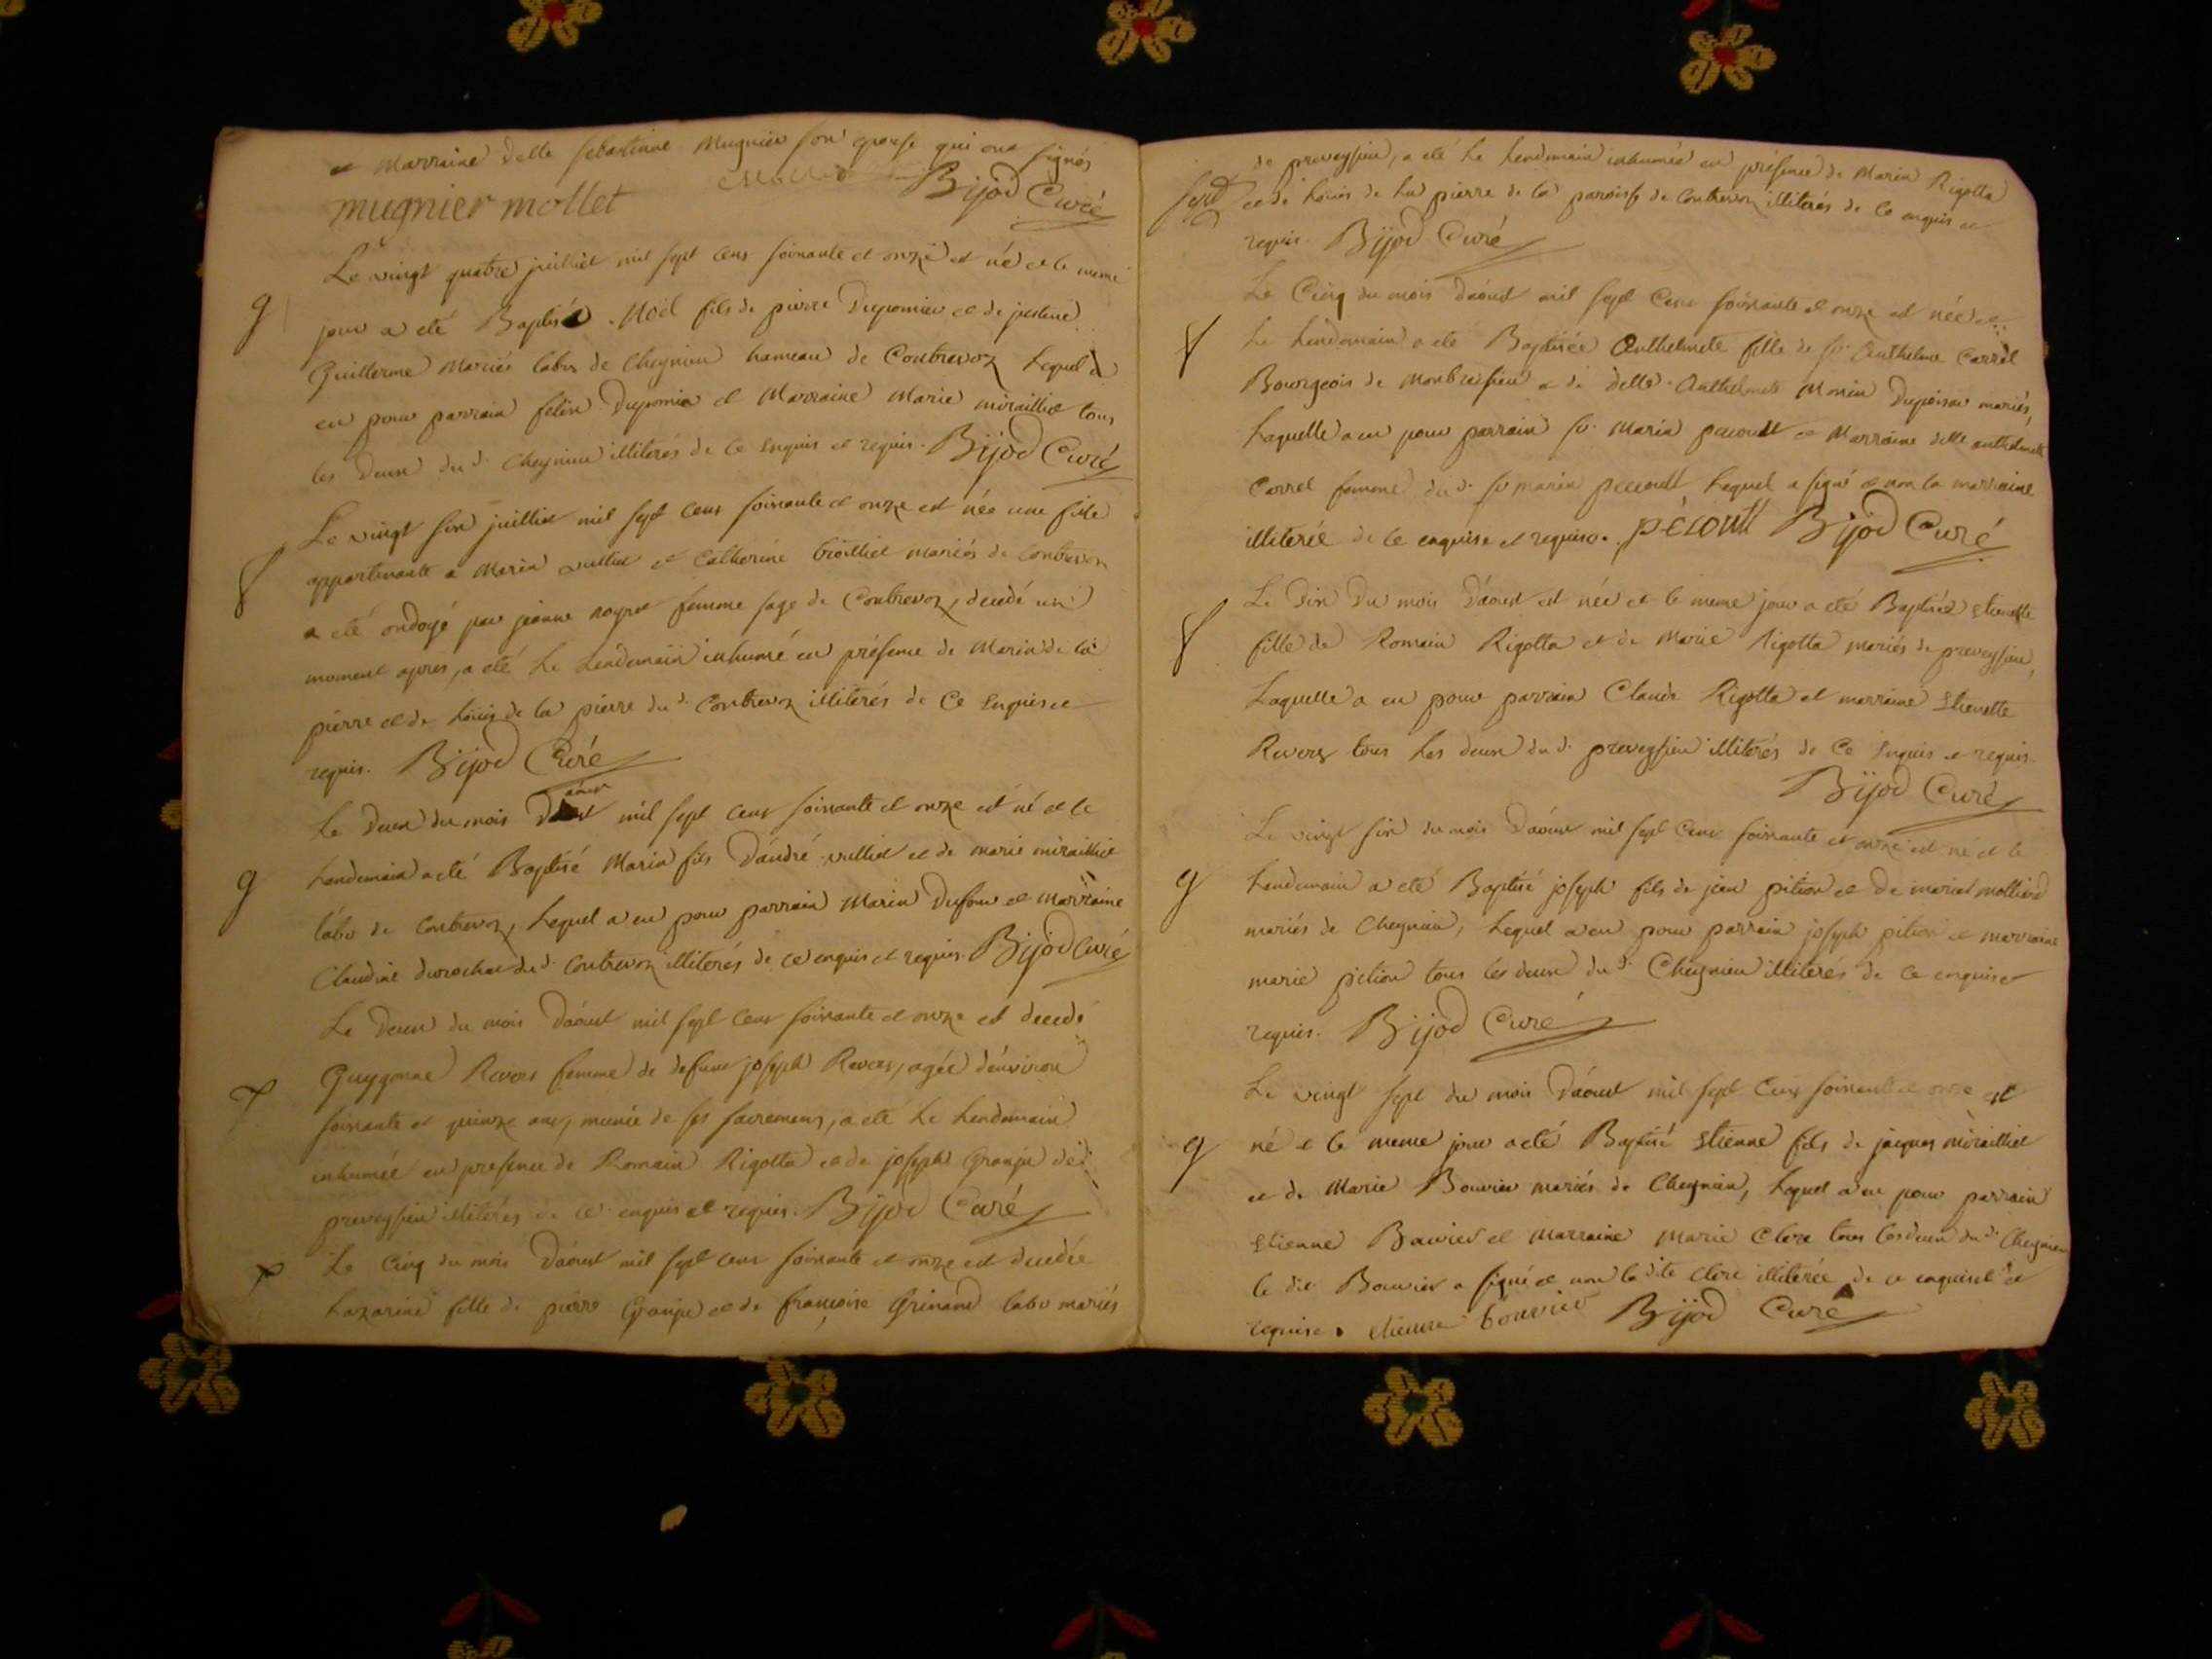 et Marraine delle sebastienne Mugnier son epouse qui ont signés
mugnier mollet Bijod Curé
Le vingt quatre juilliet mil sept cens soixante et onze est né et le meme
g jour a eté Baptisé . Noël fils de pierre Dupomier et de justine
Guillerme Mariés labrs de Cheignieu hameau de Contrevoz Lequel a
eu pour parrain felix Dupomier et Marraine Marie miraillet tous
les Deux du d. Cheignieu illiterés de ce enquis et requis. Bijod Curé
Le vingt six juilliet mil sept cens soixante et onze est née une fille
f appartenante a Marin vulliet et Catherine mariés de Contrevoz
a eté ondoyé par jeanne noyret femme sage de Contrevoz, decedé un
moment apres, a eté Le Lendemain inhumé en présence de Marin de la
pierre et de Loüis de la pierre du d. Contrevoz illiterés de Ce Enquis et
requis. Bijod Curé
aoust
Le Deux du mois mil sept cens soixante et onze est né et le
g Lendemain a eté Baptisé Marin fils D'andré vulliet et de marie miraillet
labrs de Contrevoz, Lequel a eu pour parrain Marin Dufour et Marraine
Claudine durochat du d. Contrevoz illiterés de ce enquis et requis. Bijod Curé
Le Deux du mois D'aoust mil sept cens soixante et onze est decedé
Guygonne Revers femme de defunt joseph Revers, agée d'environ
soixante et quinze ans, munie de ses sacremens, a eté Le Lendemain
inhumée en presence de Romain Rigotta et de joseph Granju de
preveyssieu illiterés de ce enquis et requis. Bijod Curé
Le Cinq du mois D'aoust mil sept cens soixante et onze est decedée
Lazarine fille de pierre Granju et de françoise Grinand labrs mariés
de preveyssieu, a eté Le Lendemain inhumée en présence de Marin Rigotta
et de Loüis de La pierre de la paroisse de Contrevoz illiterés de Ce enquis et
requis. Bijod Curé
Le Cinq du mois D'aoust mil sept Cens soixante et onze est née et
f Le Lendemain a eté Baptisée Anthelmete fille de sr. Anthelme Carrel
Bourgeois de Monbreysieu et de delle. Anthelmete Monin Dupoisau mariés,
Laquelle a eu pour parrain sr. Marin pecoult et Marraine delle anthelmete
Carrel femme du d. sr marin pecoult Lequel a signé et non la marraine
illiterée de Ce enquise et requise. pécoult Bijod Curé
Le Dix Du mois D'aoust est née et le meme jour a eté Baptisée Etienette
f fille de Romain Rigotta et de Marie Rigotta mariés de preveyssieu,
Laquelle a eu pour parrain Claude Rigotta et marraine Etienette
Revers tous Les deux du d. preveyssieu illiterés de Ce Enquis et requis.
Bijod Curé
Le vingt six du mois D'aoust mil sept Cens soixante et onze est né et le
g Lendemain a eté Baptisé joseph fils de jean pition et De mariet molliard
mariés de Cheignieu, Lequel a eu pour parrain joseph pition et marraine
marie pition tous les deux du d. Cheignieu illiterés de Ce enquis et
requis. Bijod Curé
Le vingt sept du mois D'aoust mil sept Cens soixante et onze est
g né et le meme jour a eté Baptisé Etienne fils de jacques miraillet
et de Marie Bouvier mariés de Cheignieu, Lequel a eu pour parrain
Etienne Bouvier et Marraine Marie Clere tous les deux du d. Cheignieu
le dit Bouvier a signé et non la dite Clere illiterée de ce enquise et
requise. etienne bouvier Bijod Curé